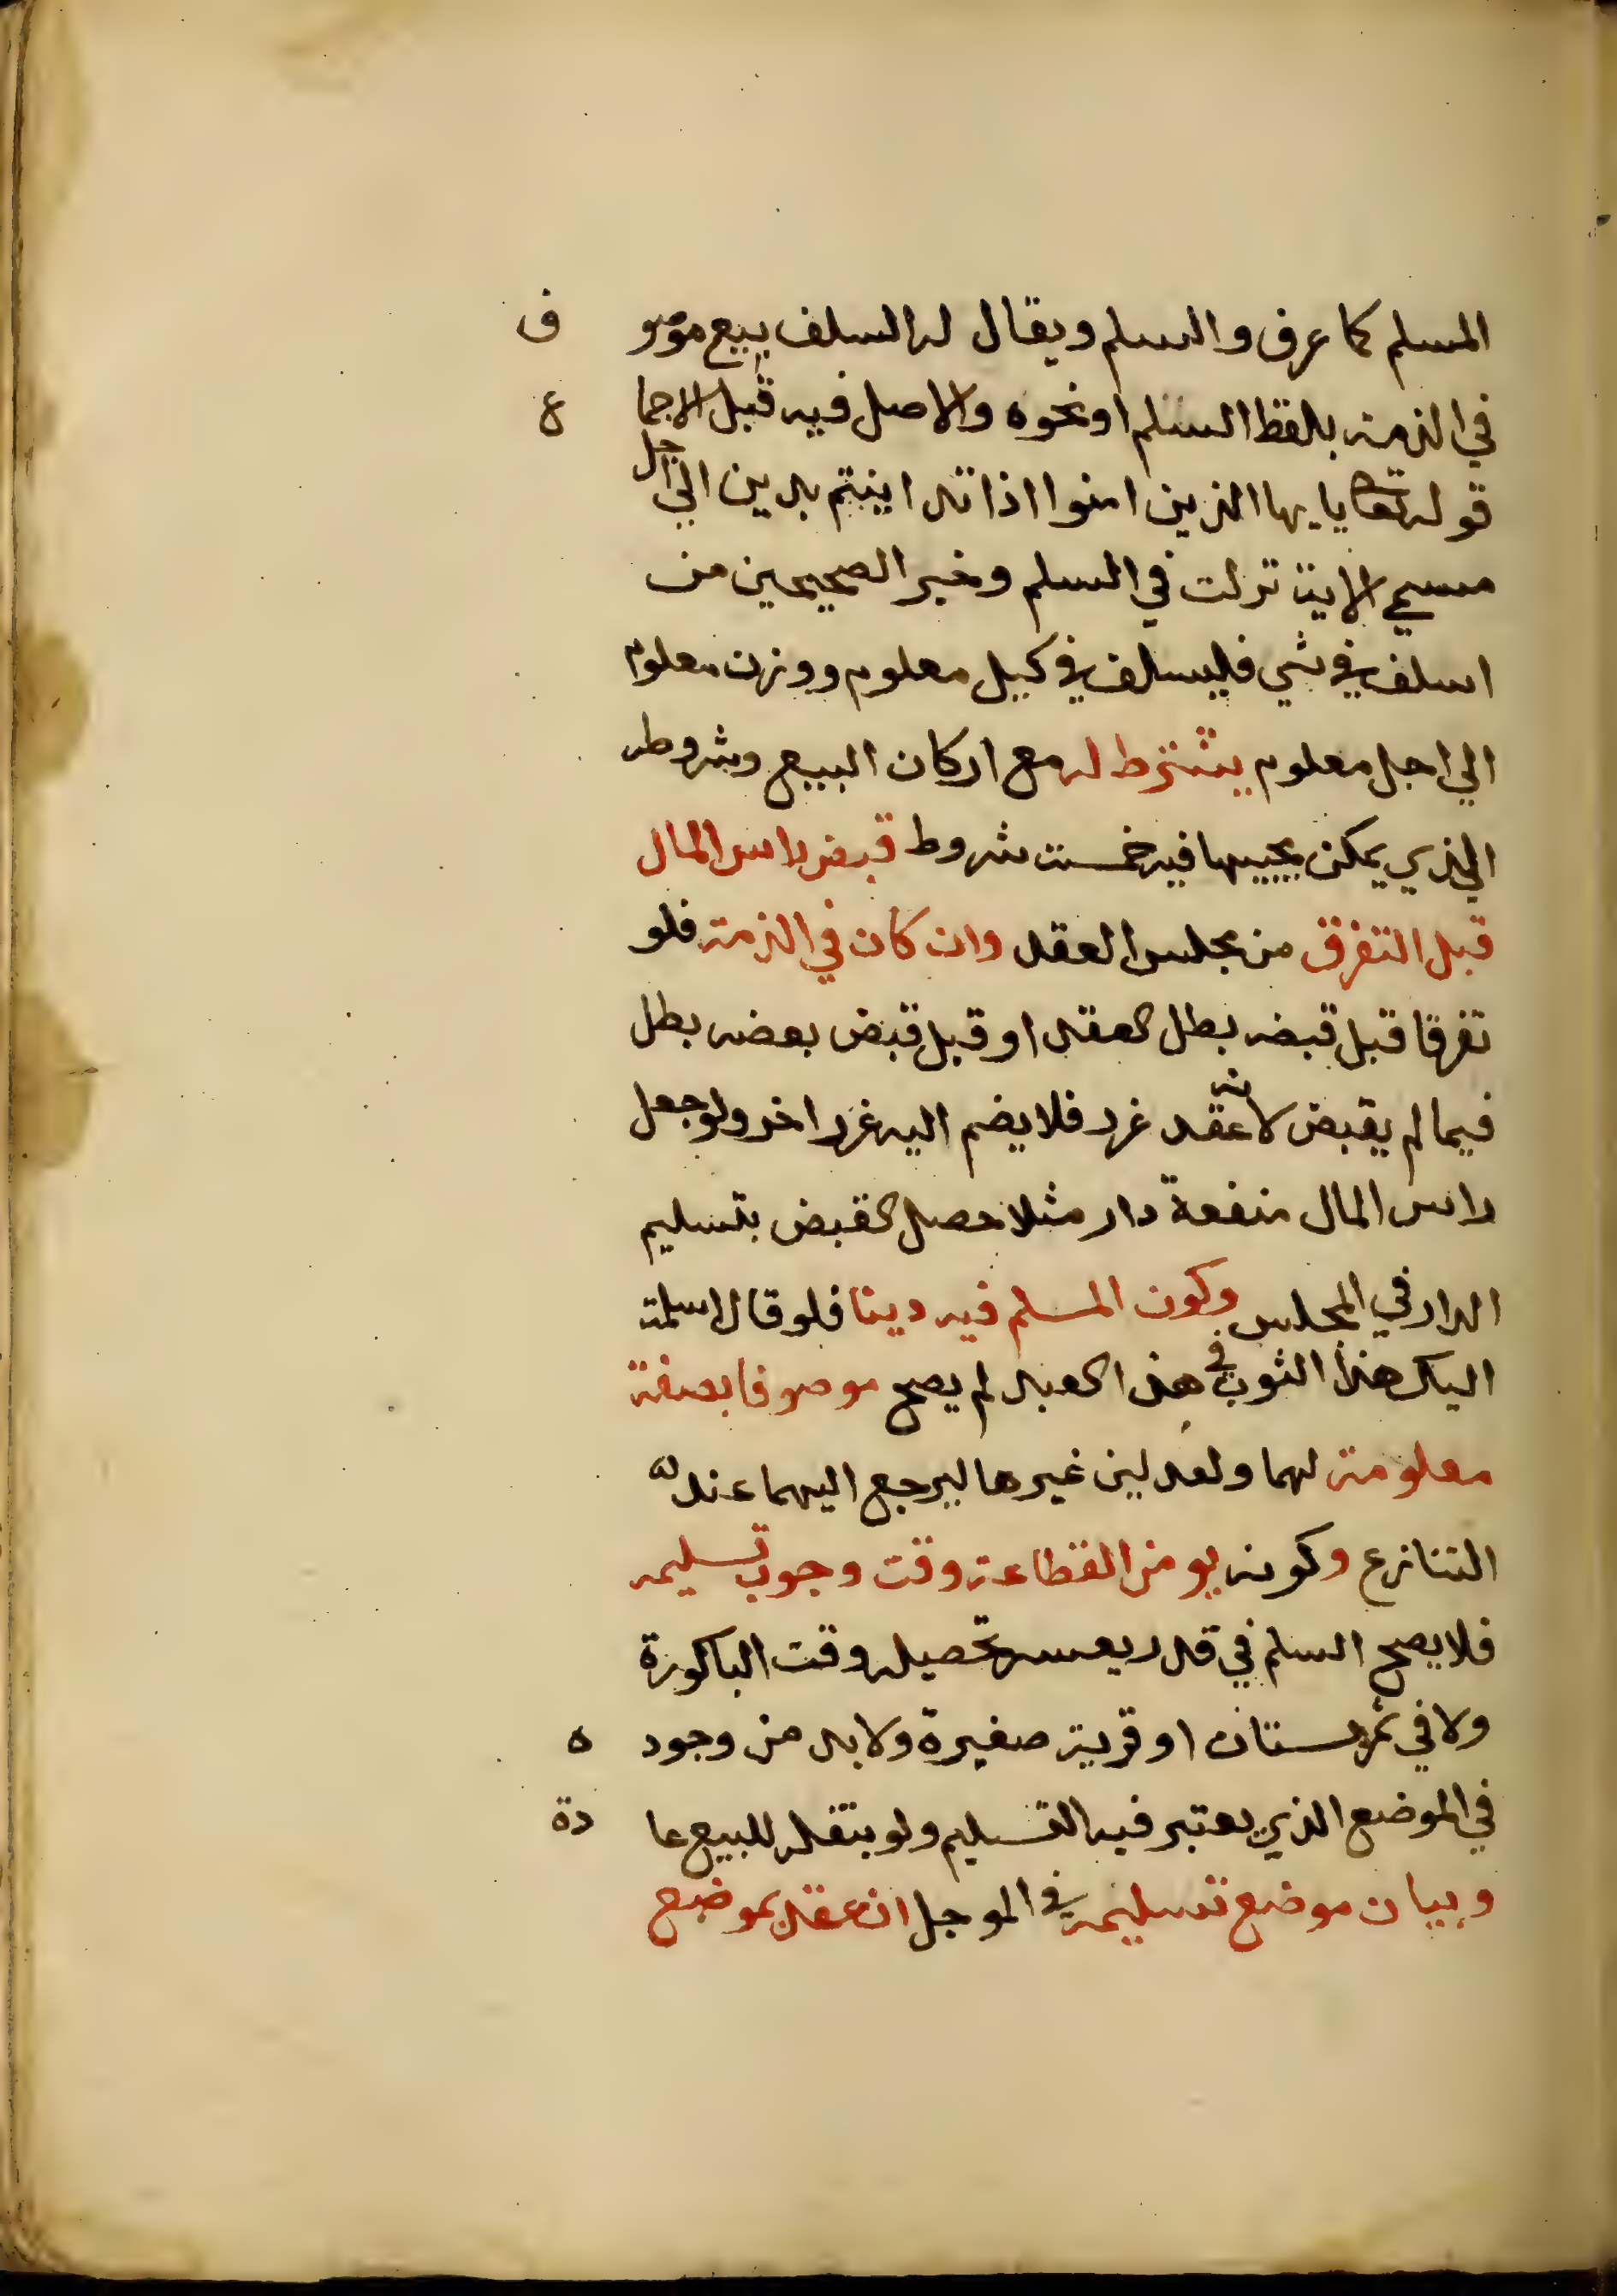 المسلم كما عرف والسلم ويقال له السلف بيع موصو ف
في الذمة بلفظ السلم او نحوه والاصل فيه قبل الاجما ع
قوله تعا يايها الذين امنوا اذا تداينتم بدين الي اجل
مسمي الاية نزلت في السلم وخبر الصحيحين من
اسلف في شي فليسلف في كيل معلوم ووزن معلوم
الي اجل معلوم يشترط له مع اركان البيع وشروطه
الذي يمكن مجييها فيه خمسة شروط قبض راس المال
قبل التفرق من مجلس العقد وان كان في الذمة فلو
تفرقا قبل قبضه بطل العقد او قبل قبض بعضه بطل
فيما لم يقبض لانه عقد غرر فلا يضم اليه غرر اخر ولو جعل
راس المال منفعة دار مثلا حصل القبض بتسليم
الدار في المجلس وكون المسلم فيه دينا فلو قال اسلمت
اليك هذا الثوب في هذا العبد لم يصح موصوفا بصفة
معلومة لهما ولعدلين غيرها ليرجع اليهما عند
التنازع وكونه يومن انقطاعه وقت وجوب تسليمه
فلا يصح السلم في قدر يعسر تحصيله وقت الباكورة
ولا في ثمر بستان او قرية صغيرة ولا بد من وجود ه
في الموضع الذي يعتبر فيه التسليم ولو بنقله للبيع عا دة
وبيان موضع تسليمه في الموجل ان عقد بموضع